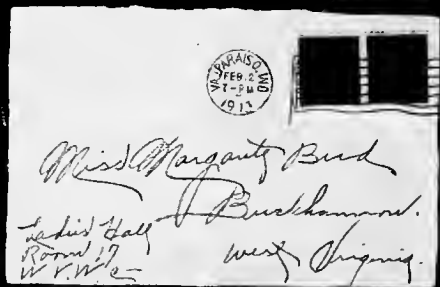 VALPARAISO, IND
FEB. 2
7-PM
1913
Miss Margaret Bird
Buckhannon.
West Virginia.
Ladies Hall
Room 17
W.V.W.C